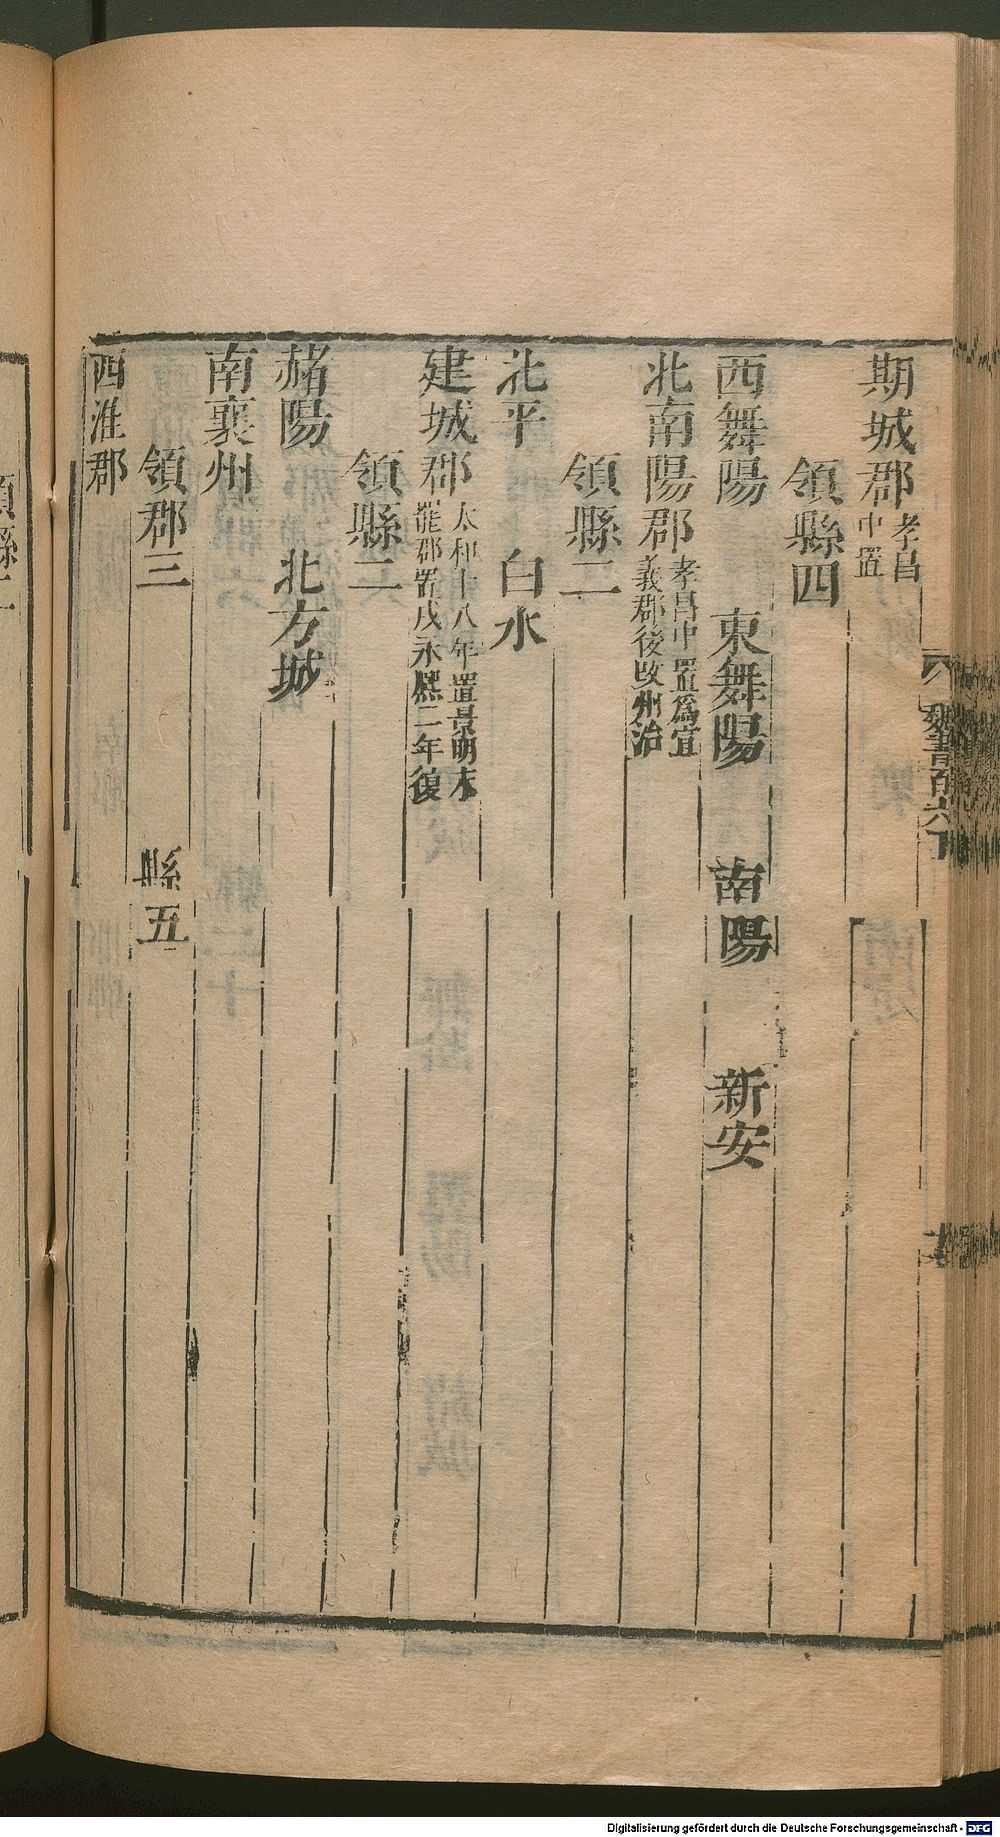 期城郡孝昌中置
領縣四
西舞陽 東舞陽 南陽 新安
北南陽郡孝昌中置爲宜義郡後改州治
領縣二
北平 白水
建城郡太和十八年置景明末罷郡置戍永熙二年復
領縣二
赭陽 北方城
南襄州
領郡三 縣五
西淮郡
領縣二
魏書百六下
Digitalisierung gefördert durch die Deutsche Forschungsgemeinschaft - DFG